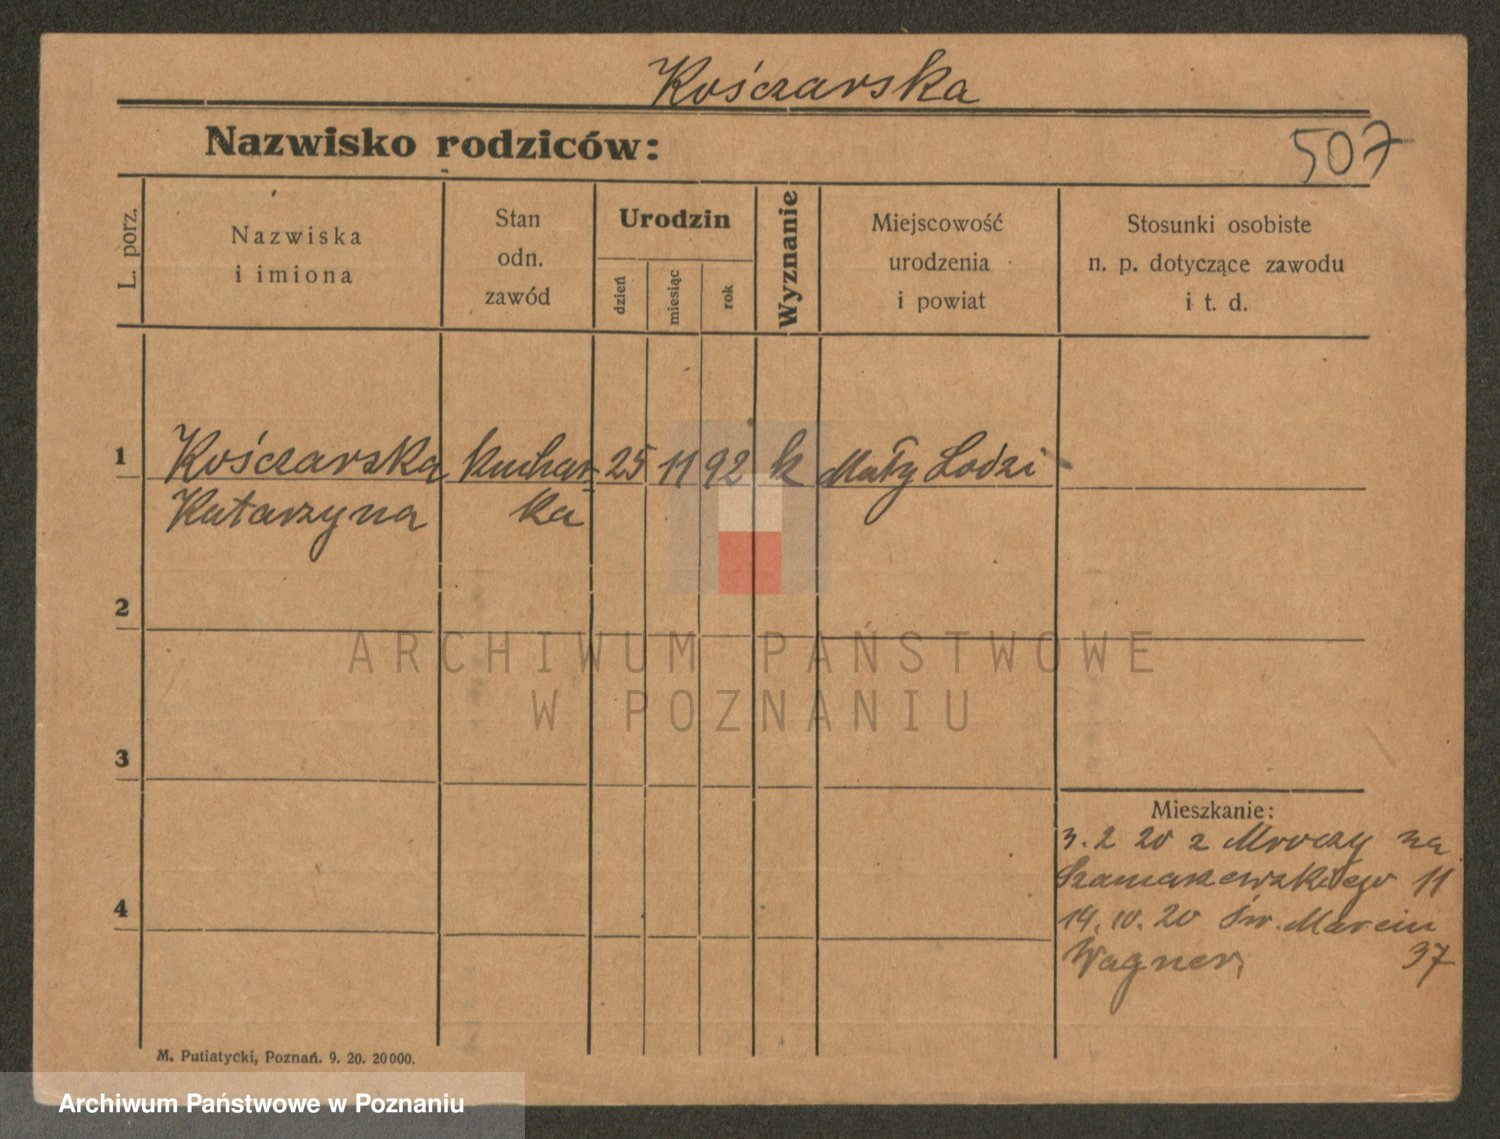 Kośczarska
Nazwisko rodziców:
507
L. porz.
Nazwiska
i imiona
Stan
odn.
zawód
Urodzin
dzień
miesiąc
rok
Wyznanie
Miejscowość
urodzenia
i powiat
Stosunki osobiste
n. p. dotyczące zawodu
i t. d.
1 Kośczarska kuchar- 25 11 92 k Mały Lodzi
Katarzyna ka
2
ARCHIWUM PAŃSTWOWE
W POZNANIU
3
Mieszkanie:
3. 2 20 z Mroczy na
Szamarzewskiego 11
4
14. 10. 20 Św. Marcin
Wagner 37
M. Putiatycki, Poznań. 9. 20. 20000.
Archiwum Państwowe w Poznaniu